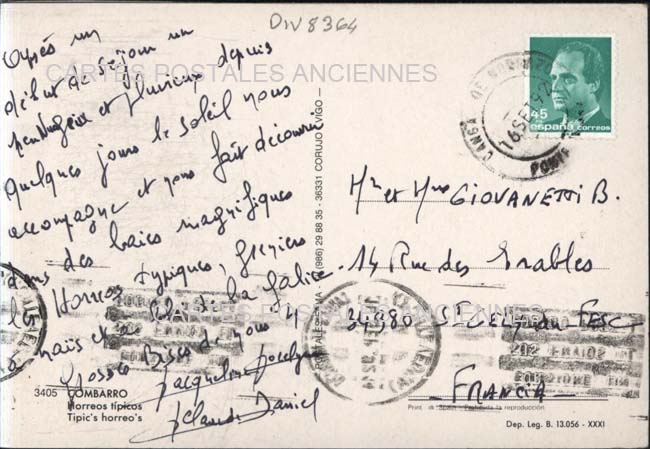 DIV8364
CARTES POSTALES ANCIENNES
Après un
début de séjour un
peu nuageux et pluvieux depuis
quelques jours le soleil nous
accompagne et nous fait découvrir
des baies magnifiques
Horreos typiques, greniers
à maïs et de la Galice.
Grosses Bises de nous 4
Jacqueline Jocelyne
Claude Daniel
3405 COMBARRO
Horreos típicos
Tipic's horreo's
(986) 29 88 35 - 36331 CORUJO (VIGO)
45
españa correos
CANGA DE
16 SET 92
Mr et Mme GIOVANETTI B.
14 Rue des Erables
34980 St Gely du FESC
FRANCIA
CARTES POSTALES ANCIENNES
Print. in Spain - Prohibida la reproducción
Dep. Leg. B. 13.056 - XXXI